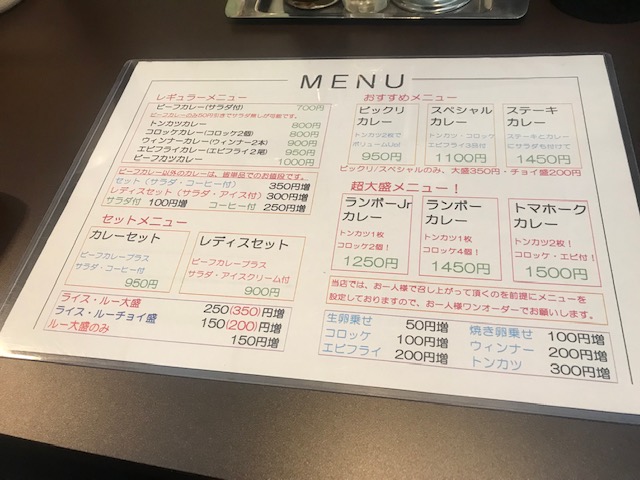 MENU
レギュラーメニュー
ビーフカレー(サラダ付) 700円
ビーフカレーのみ50円引きでサラダ無しが可能です。
トンカツカレー 800円
コロッケカレー(コロッケ2個) 800円
ウィンナーカレー(ウィンナー2本) 900円
エビフライカレー(エビフライ2尾) 950円
ビーフカツカレー 1000円
ビーフカレー以外のカレーは、皆単品でのお値段です。
セット (サラダ・コーヒー付) 350円増
レディスセット (サラダ・アイス付) 300円増
サラダ付 100円増 コーヒー付 250円増
セットメニュー
カレーセット
ビーフカレープラス
サラダ・コーヒー付
950円
レディスセット
ビーフカレープラス
サラダ・アイスクリーム付
900円
ライス・ルー大盛 250(350)円増
ライス・ルーチョイ盛 150(200)円増
ルー大盛のみ 150円増
おすすめメニュー
ビックリ
カレー
トンカツ2枚で
ボリュームUp!
950円
スペシャル
カレー
トンカツ・コロッケ
エビフライ3品付
1100円
ステーキ
カレー
ステーキとカレー
にサラダも付けて
1450円
ビックリ/スペシャルのみ、大盛350円・チョイ盛200円
超大盛メニュー!
ランボーJr
カレー
トンカツ1枚
コロッケ2個!
1250円
ランボー
カレー
トンカツ1枚
コロッケ4個!
1450円
トマホーク
カレー
トンカツ2枚!
コロッケ・エビ付!
1500円
当店では、お一人様で召し上がって頂くのを前提にメニューを
設定しておりますので、お一人様ワンオーダーでお願いします。
生卵乗せ 50円増 焼き卵乗せ 100円増
コロッケ 100円増 ウィンナー 200円増
エビフライ 200円増 トンカツ 300円増